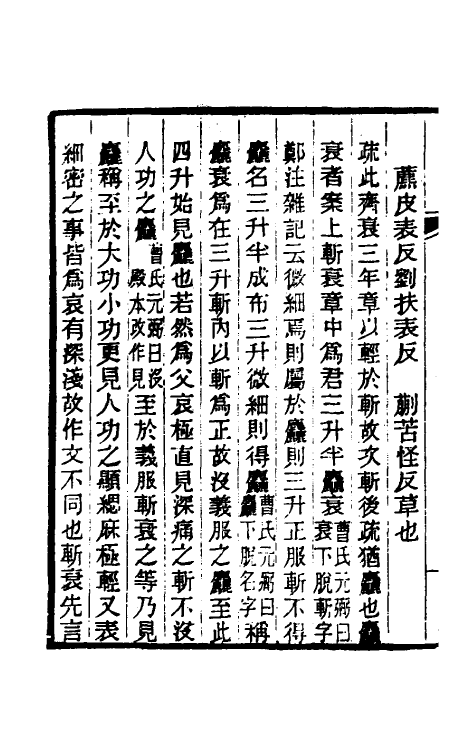 藨皮表反劉扶表反　蒯苦怪反草也
疏此齊衰三年章以輕於斬故次斬後疏猶麤也麤
衰者案上斬衰章中為君三升半麤衰曹氏元弼曰衰下脫斬字
鄭注雜記云微細焉則屬於麤則三升正服斬不得
麤名三升半成布三升微細則得麤曹氏元弼曰麤下脫名字稱
麤衰為在三升斬內以斬為正故沒義服之麤至此
四升始見麤也若然為父哀極直見深痛之斬不沒
人功之麤曹氏元弼曰沒殿本改作見至於義服斬衰之等乃見
麤稱至於大功小功更見人功之顯緦麻極輕又表
細密之事皆為哀有深淺故作文不同也斬衰先言